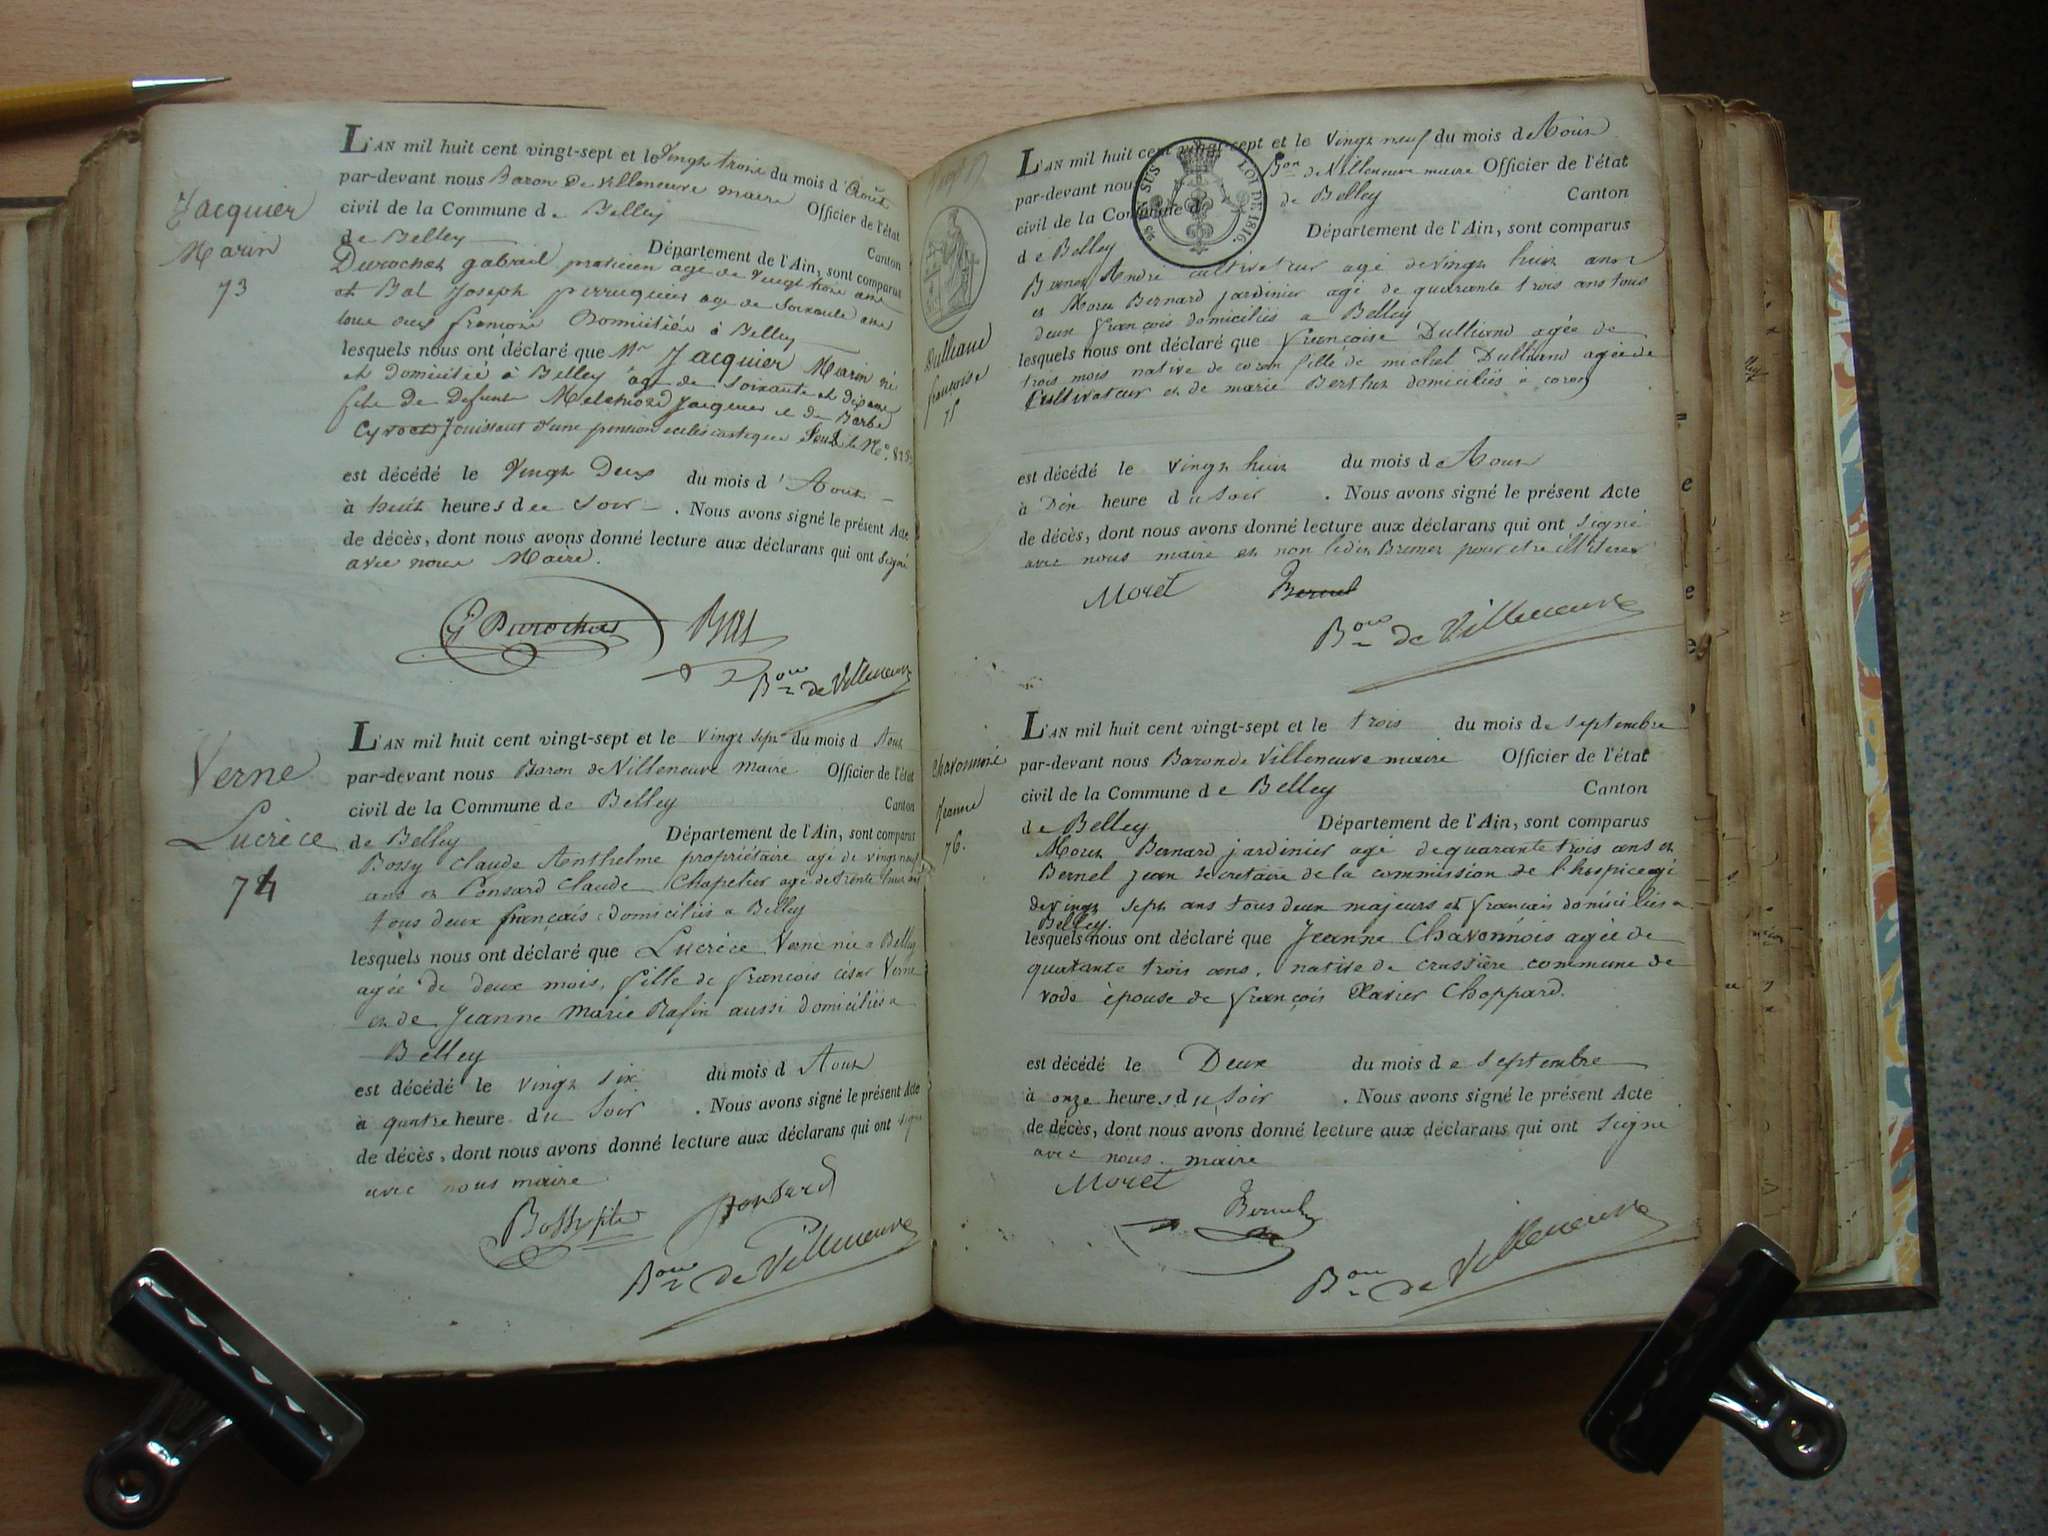 Jacquier
Marin
73
L'AN mil huit cent vingt-sept et le Vingt trois du mois d'Août
par-devant nous Baron de Villeneuve maire Officier de l'état
civil de la Commune de Belley Canton
de Belley Département de l'Ain, sont comparus
Durochat gabriel praticien âgé de vingt trois ans
et Bal Joseph perruquier age de Soixante ans
tous deux françois Domiciliés à Belley
lesquels nous ont déclaré que Mr Jacquier Marin né
et domicilié à Belley âgé de Soixante et dix ans
fils de Defunt Melchiord Jacquier et de Barbe
jouissant d'une pension ecclésiastique sous le No.
est décédé le Vingt Deux du mois d'Aout
à huit heures du Soir . Nous avons signé le présent Acte
de décès, dont nous avons donné lecture aux déclarans qui ont Signé
avec nous Maire.
G Durochat Bal
Bon de Villeneuve
Verne
Lucrèce
74
L'AN mil huit cent vingt-sept et le vingt sept du mois d Aout
par-devant nous Baron de Villeneuve Maire Officier de l'état
civil de la Commune de Belley Canton
de Belley Département de l'Ain, sont comparus
Bossy Claude Anthelme propriétaire agé de vingt neuf
ans et Ponsard Claude Chapelier agé de trente huit ans
tous deux français domiciliés a Belley
lesquels nous ont déclaré que Lucrèce Verne née a Belley
agée de deux mois, fille de françois césar Verne
et de Jeanne Marie Rafin aussi domiciliés a
Belley
est décédé le vingt six du mois d Aout
à quatre heure du Soir . Nous avons signé le présent Acte
de décès, dont nous avons donné lecture aux déclarans qui ont signé
avec nous maire
Bossy fils Ponsard
Bon de Villeneuve
Dulliand
francoise
75
SUS LOI DE 1816.
L'AN mil huit cent vingt-sept et le Vingt neuf du mois d Aout
par-devant nous Bon de Villeneuve maire Officier de l'état
civil de la Commune de Belley Canton
de Belley Département de l'Ain, sont comparus
André cultivateur agé de vingt huit ans
et Moret Bernard jardinier agé de quarante trois ans tous
deux françois domiciliés a Belley
lesquels nous ont déclaré que françoise Dulliand agée de
trois mois native de coron fille de michel Dulliand agée de
Cultivateur et de marie Berthet domiciliés à coron
est décédé le vingt huit du mois d Aout
à Dix heure du Soir . Nous avons signé le présent Acte
de décès, dont nous avons donné lecture aux déclarans qui ont signé
avec nous maire et non ledit pour etre illiteré
Moret Bernel
Bon de Villeneuve
Chavonnois
Jeanne
76.
L'AN mil huit cent vingt-sept et le trois du mois de septembre
par-devant nous Baron de Villeneuve maire Officier de l'état
civil de la Commune de Belley Canton
de Belley Département de l'Ain, sont comparus
Moret Bernard jardinier agé de quarante trois ans et
Bernel jean Secretaire de la commission de l'hospice agé
de vingt sept ans tous deux majeurs et français domiciliés a
Belley.
lesquels nous ont déclaré que Jeanne Chavonnois agée de
quatante trois ans, native de crassière commune de
vods épouse de françois Xavier Choppard.
est décédé le Deux du mois de septembre
à onze heures du Soir . Nous avons signé le présent Acte
de décès, dont nous avons donné lecture aux déclarans qui ont signé
avec nous maire
Moret
Bernel
Bon de Villeneuve